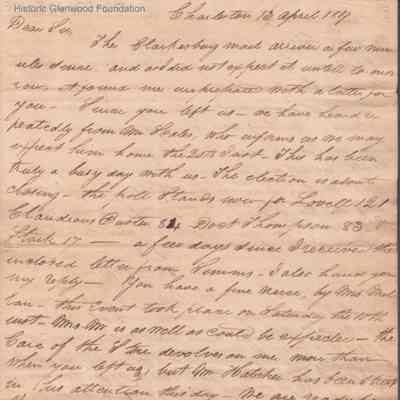 Historic Glenwood Foundation
Charleston 12 April 184
Dear Sir,
The Clarksburg mail arrived a few min
utes since, and as I did not expect it until to mor
row, it found me unprepared with a letter for
you - Since you left us - we have heard re
peatedly from Mr Hales, who informs us we may
expect him home the 20th Inst - This has been
truly a busy day with us - The election is about
closing - the poll stands now for Lovell 121
Claudeous Buster 84 Doct Thompson 83
Stark 17 — a few days since I received the
inclosed letter from Simms - I also hand you
my reply - You have a fine niece, by Mrs
Lan - this Event took place on Saturday the 10th
inst - Mrs is as well as could be expected - the
Care of the Store devolves on me more than
when you left us, but Mr Hatcher has been
in his attention this day - We are